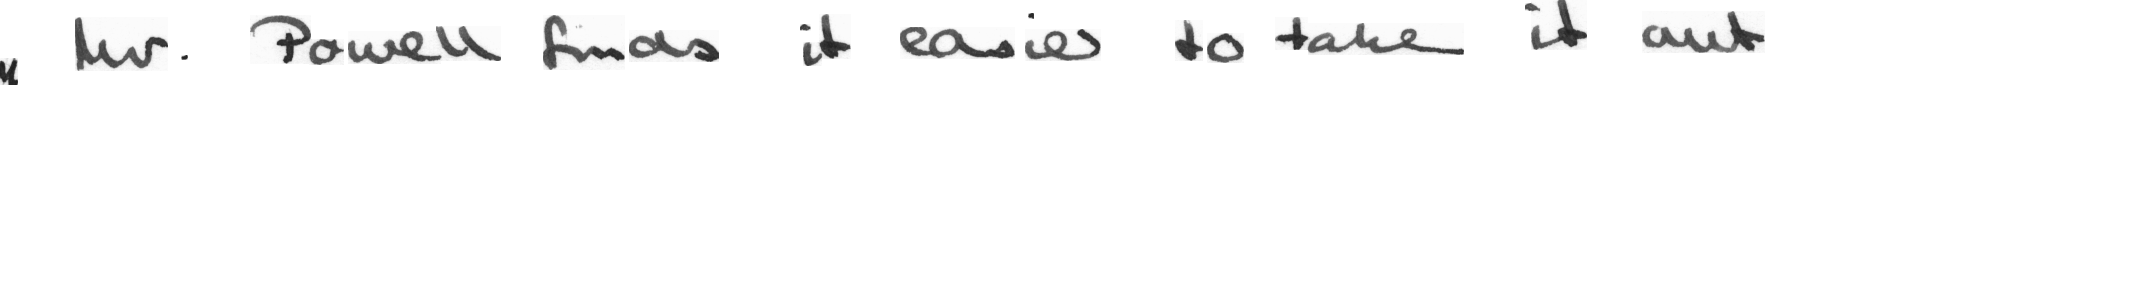 " Mr. Powell finds it easier to take it out